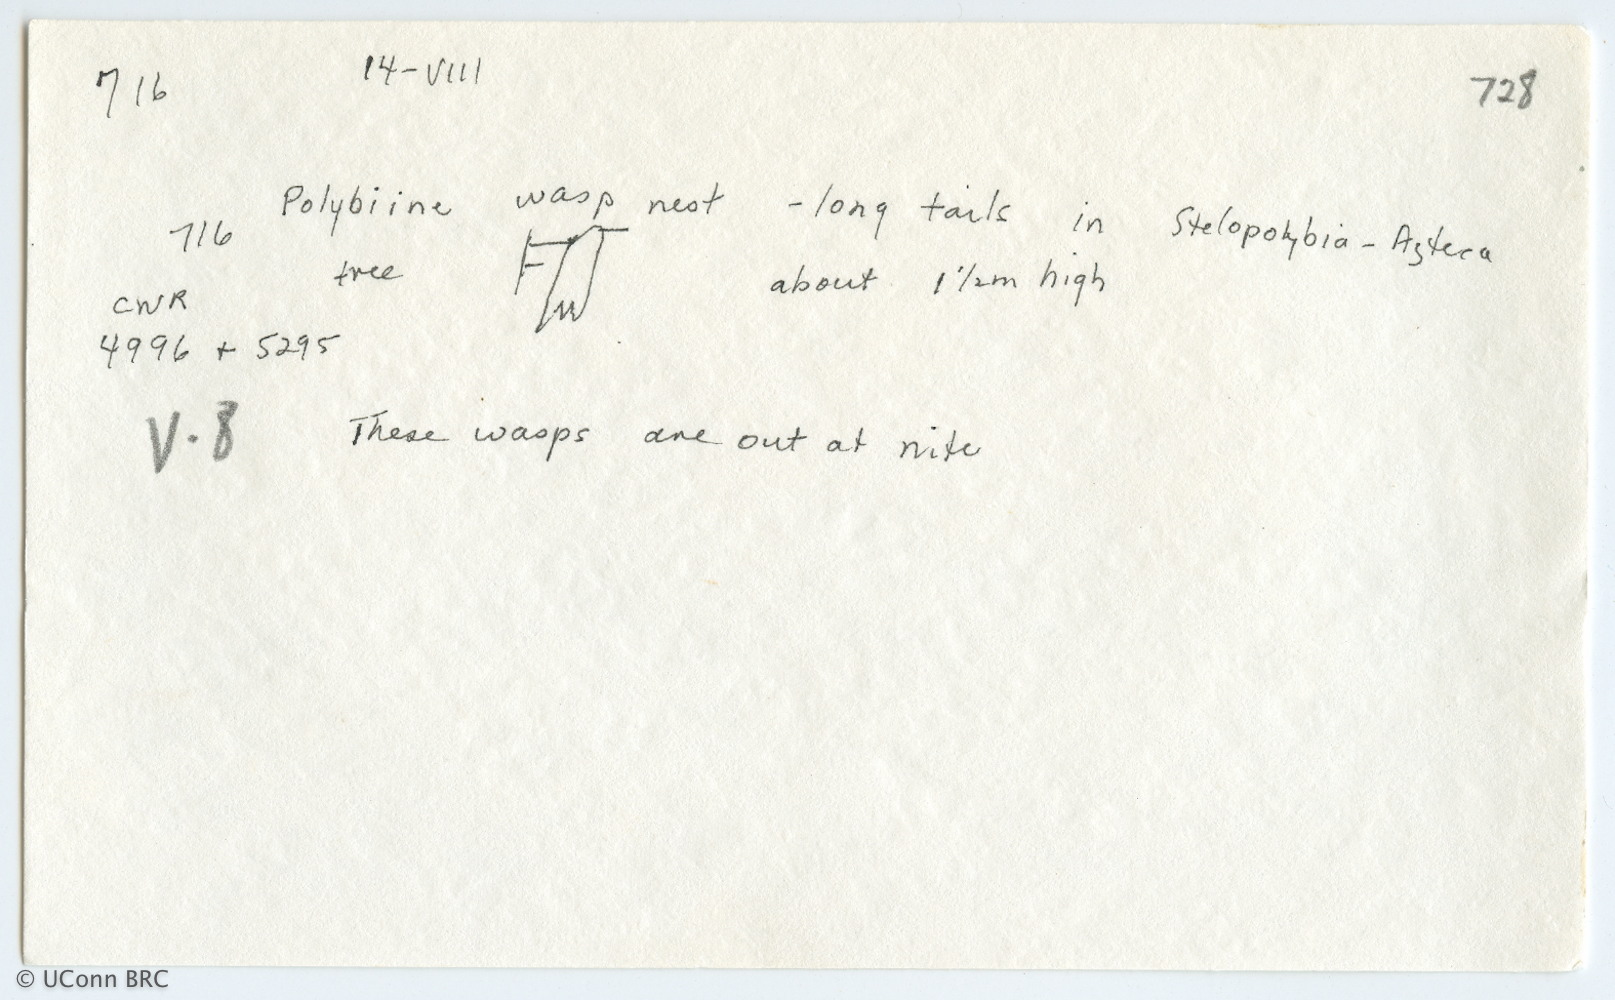 716 14-VIII 728
Polybiine wasp nest - long tails in Stelopolybia - Azteca
716
tree about 1 1/2m high
CWR
4996 + 5295
V.8 These wasps are out at nite
© UConn BRC